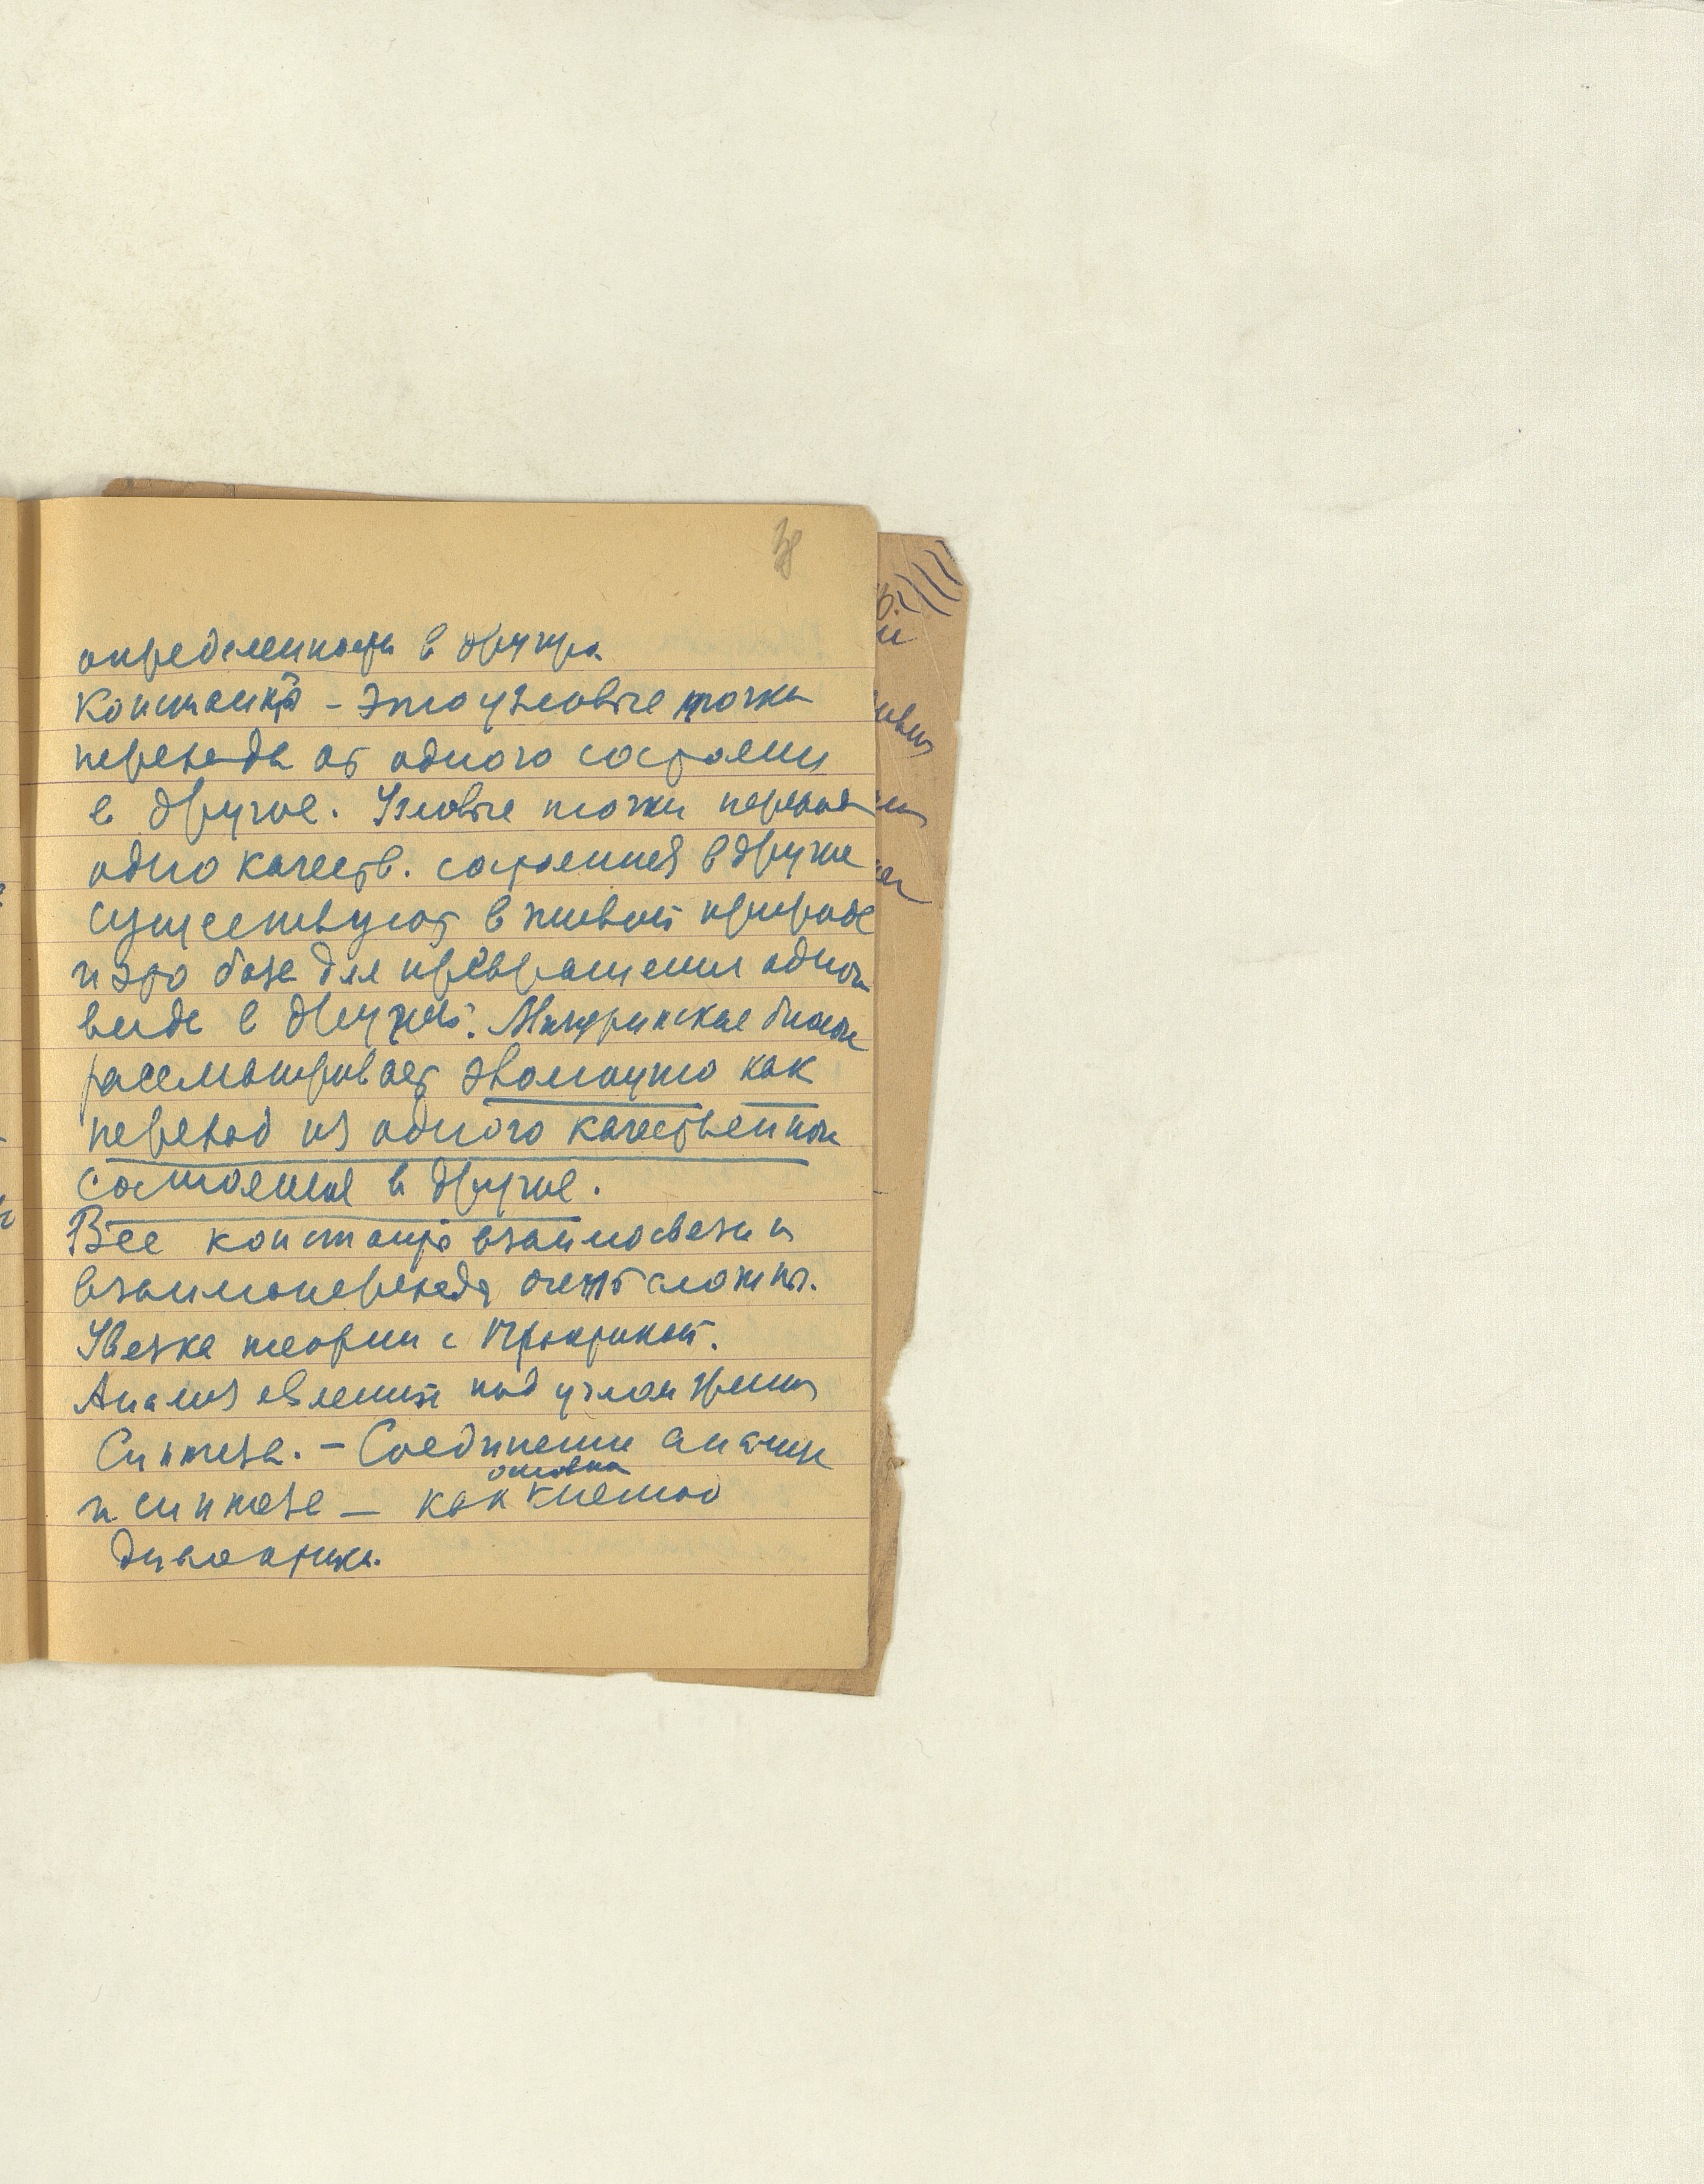 определенности в другую
Константы – это узловые точки
перехода от одного состояни
в другое. Узловые точки перехода
одно качеств. состояния в другие
существуют в живой природе
и это база для превращения одного
вида в другой. Мичуринская биолог
рассматривает эволюцию как
переход из одного качественного
состояния в другое.
Все константы взаимосвязи и
взаимоперехода очень сложны.
Увязка теории с практикой.
Анализ явлений под углом зрения
Синтеза. – Соединение анализа
и синтеза – как основа к метод
диалектики.